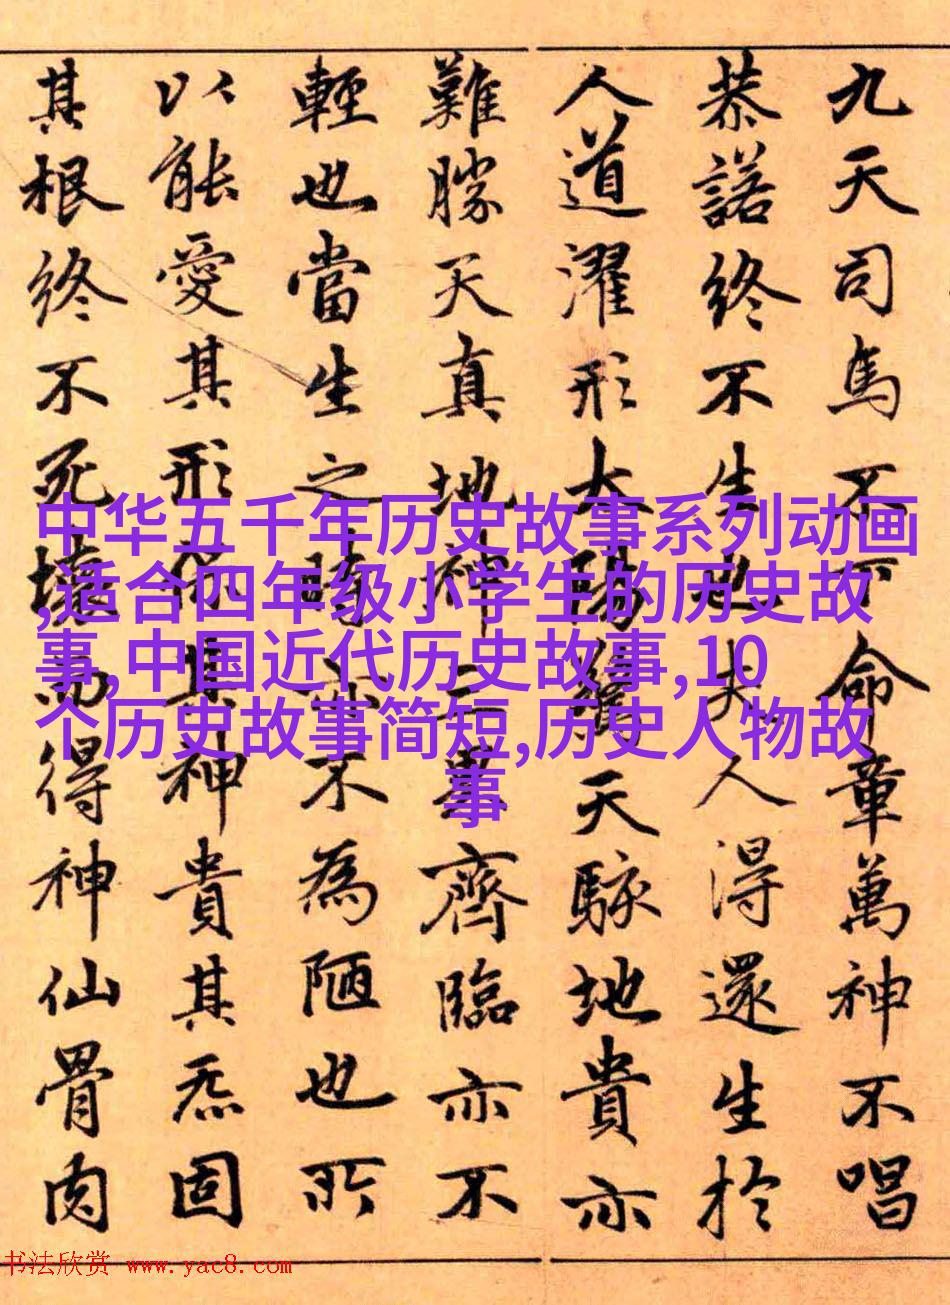 九天司馬不下命章萬神不唱
恭諾終不生也夫人得還生於
人道濯形太陽驚天駭地貴亦
難勝天真地神三界齊臨亦不
輕也當生之時亦不為陋也所
以能愛其形保其神貴其炁固
其根終不死壞而得神仙骨肉
中华五千年历史故事系列动画
,适合四年级小学生的历史故
事,中国近代历史故事,10
个历史故事简短,历史人物故
事
书法欣赏 www.yac8.com